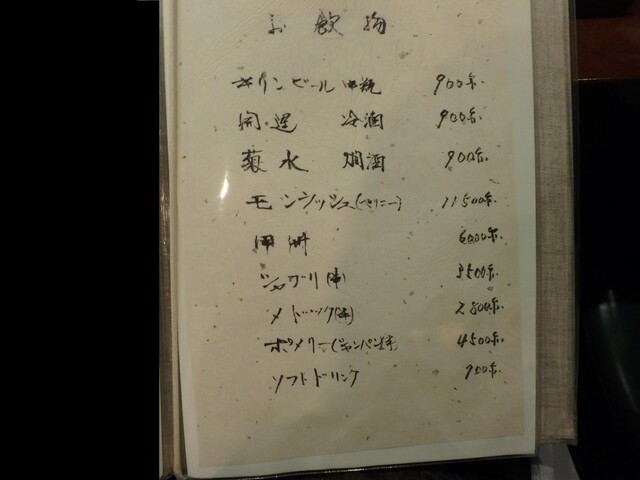 お飲物
キリンビール 中瓶 900円.
開運 冷酒 900円.
菊水 燗酒 900円.
モンラッシュ 11500円.
甲州 6000円.
シャブリ(半) 3500円.
メドック(半) 2800円.
ポメリー(シャンパン半) 4500円.
ソフトドリンク 900円.